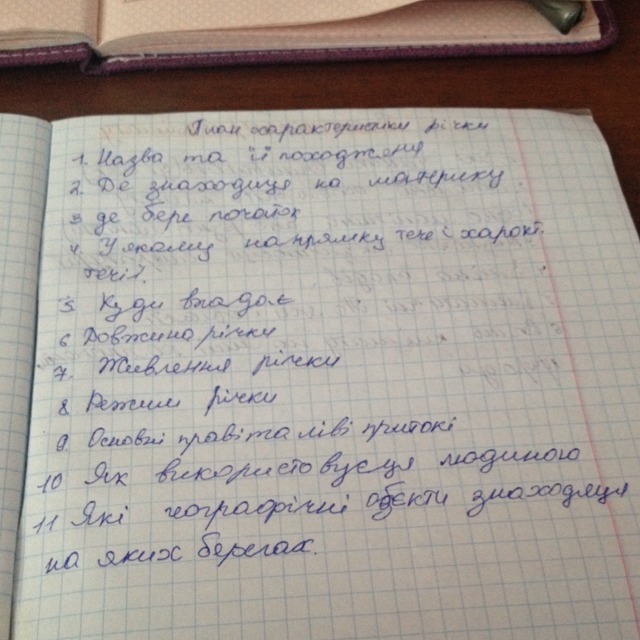 План характеристики річки
1. Назва та її походження
2. Де знаходиця на материку
3 де бере початок
4. У якому напрямку тече і характ.
течії.
5. Куди впадає
6 Довжина річки
7. Живлення річки
8 Режим річки
9. Основні праві та ліві притокі
10 Як використовуєця людиною
11 Які географічні обєкти знаходяця
на яких берегах.